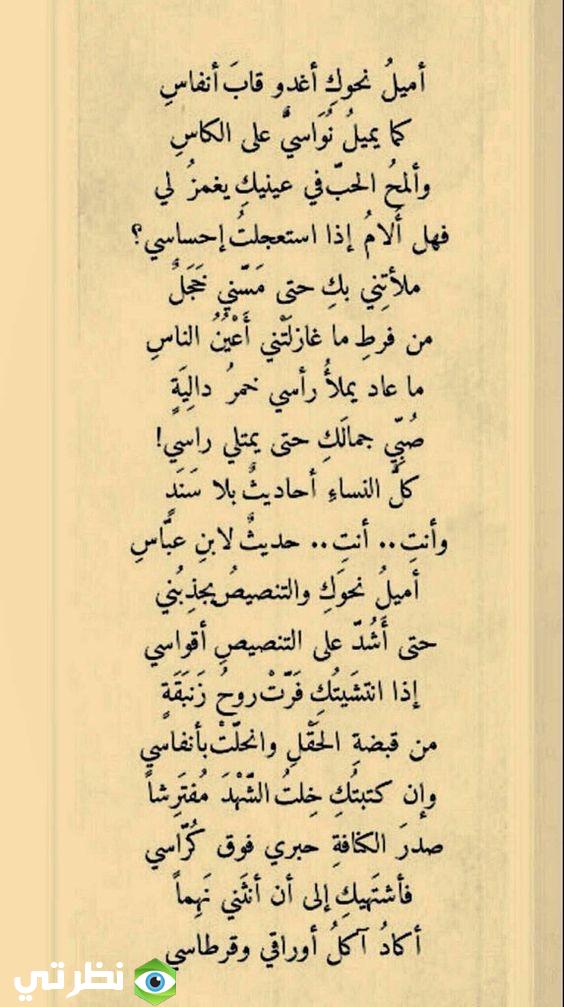 أميلُ نحوكِ أغدو قابَ أنفاسِ
كما يميلُ نُوَاسيٌّ على الكاسِ
وألمحُ الحبّ في عينيكِ يغمزُ لي
فهل أُلامُ إذا استعجلتُ إحساسي؟
ملأتِني بكِ حتى مَسّني خَجَلٌ
من فرطِ ما غازلَتْني أَعْيُنُ الناسِ
ما عاد يملأُ رأسي خمرُ دالِيَةٍ
صُبِّي جمالَكِ حتى يمتلي راسي!
كلُّ النساءِ أحاديثٌ بلا سَنَدٍ
وأنتِ.. أنتِ.. حديثٌ لابنِ عبَّاسِ
أميلُ نحوَكِ والتنصيصُ يجذِبُني
حتى أَشُدّ على التنصيصِ أقواسي
إذا انتشَيتُكِ فَرّتْ روحُ زَنبَقَةٍ
من قبضةِ الحَقْلِ وانحلّتْ بأنفاسي
وإن كتبتُكِ خِلتُ الشّهْدَ مُفتَرِشاً
صدرَ الكنافةِ حبري فوق كُرّاسي
فأشتَهيكِ إلى أن أنثَني نَهِماً
أكادُ آكلُ أوراقي وقرطاسي
نظرتي